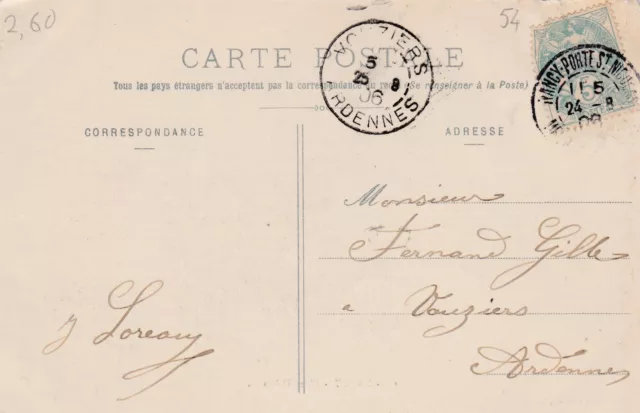 2,60
54
CARTE POSTALE
Tous les pays étrangers n'acceptent pas la correspondance au recto (Se renseigner à la Poste)
CORRESPONDANCE
ADRESSE
VOUZIERS
5
25 8
06
ARDENNES
NANCY-PORTE ST NICOLAS
11 5
24 8
06
Monsieur
Fernand Gille
a Vouziers
Ardennes